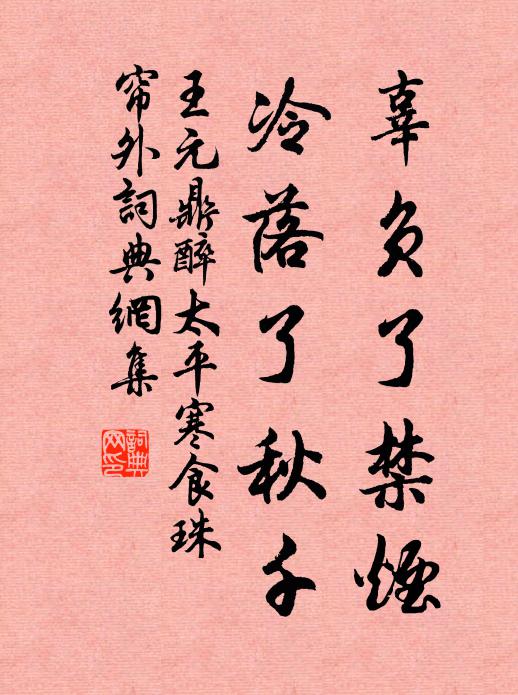 辜负了禁煙
冷落了秋千
王元鼎醉太平寒食珠
帘外詞典網集
詞典
网印